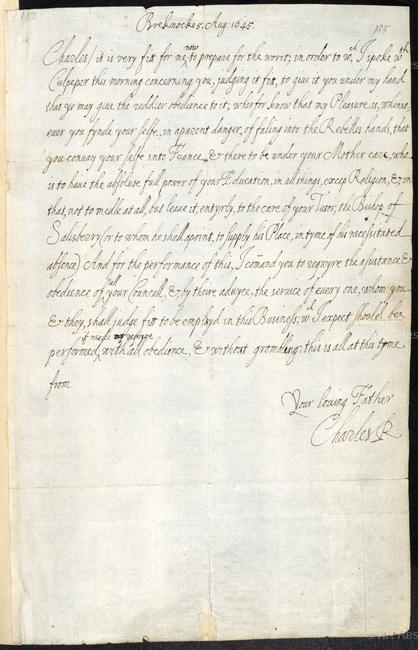 113
185
Breknocke 5. Aug: 1645.
Charles/ it is very fitt for me now to prepare for the worst; in order to wch, I spoke wth
Culpeper this morning concerning you, judging it fitt, to give it you under my hand
that ye may give the reddier obedience to it; wherfor know that my Pleasure is, whense-
ever you fynde your selfe, in aparent danger, of faling into the Rebelles hands, that
you convay your selfe into France, & there to be under your Mother care, who
is to have the absolute full power of your Education, in all things, excep Religion, & in
that, not to medle at all, but leave it entyrly, to the care of your Tutor, the Bishop of
Salisberry (or to whom he shall apoint, to supply his Place, in tyme of his necessitated
absence) And for the performance of this, I comand you to requyre the asistance &
obedience of all your Councell, & by theire advyce, the service of every one, whom you
& they, shall judge fitt to be employd in this Business; wch I expect should bee
performed, if neede requyre, with all obedience, & without grombling: this is all at this tyme
from
Your loving Father
Charles R